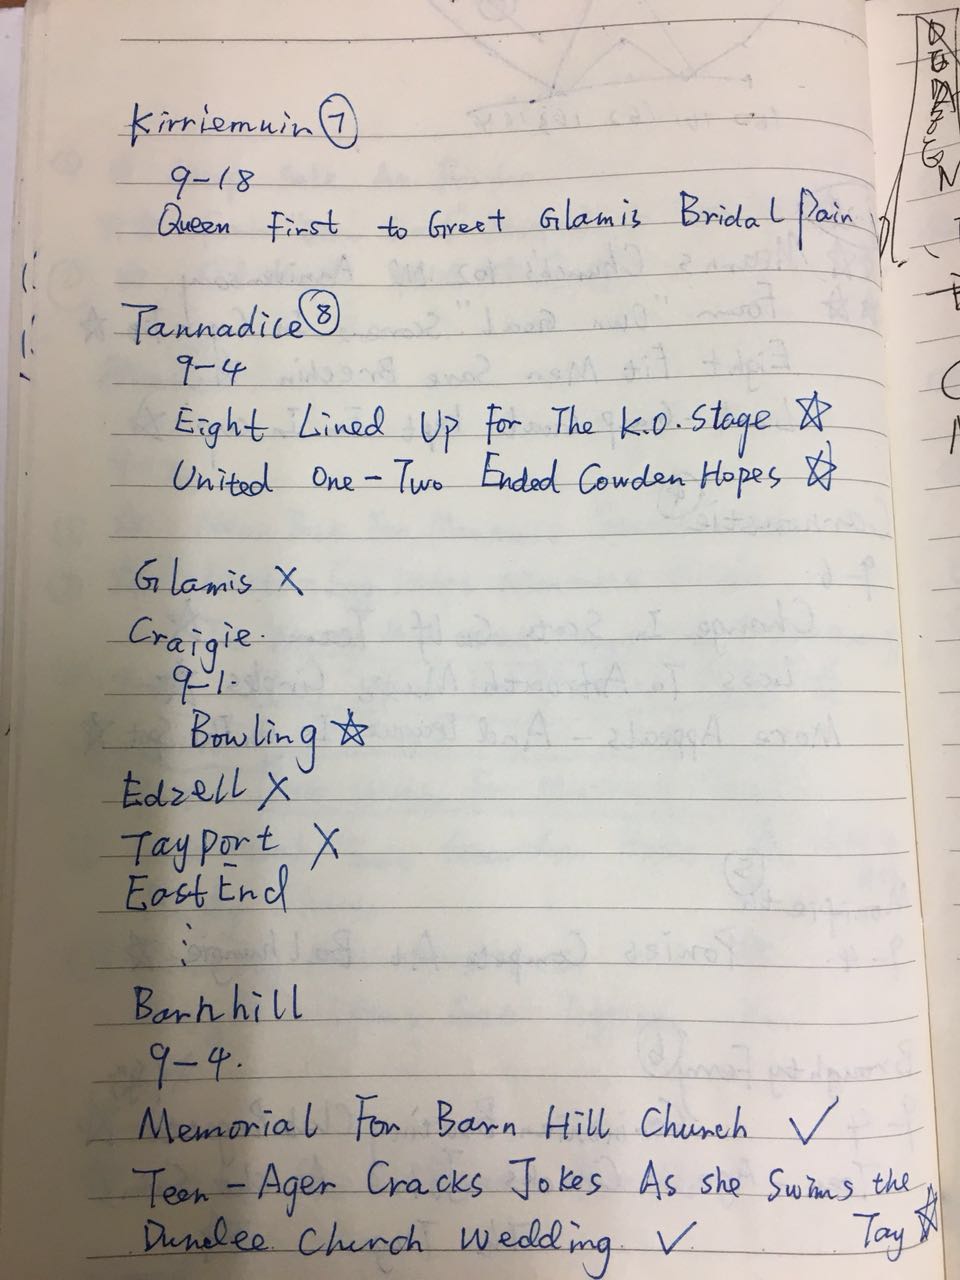 Kirriemuir 7
9-18
Queen First to Greet Glamis Bridal Pair
Tannadice 8
9-4
Eight Lined Up For The K.O. Stage ☆
United One-Two Ended Cowden Hopes ☆
Glamis X
Craigie.
9-1.
Bowling ☆
Edzell X
Tayport X
East End
⋮
Barnhill
9-4.
Memorial For Barn Hill Church ✓
Teen-Ager Cracks Jokes As she Swims the
Tay ☆
Dundee Church Wedding. ✓